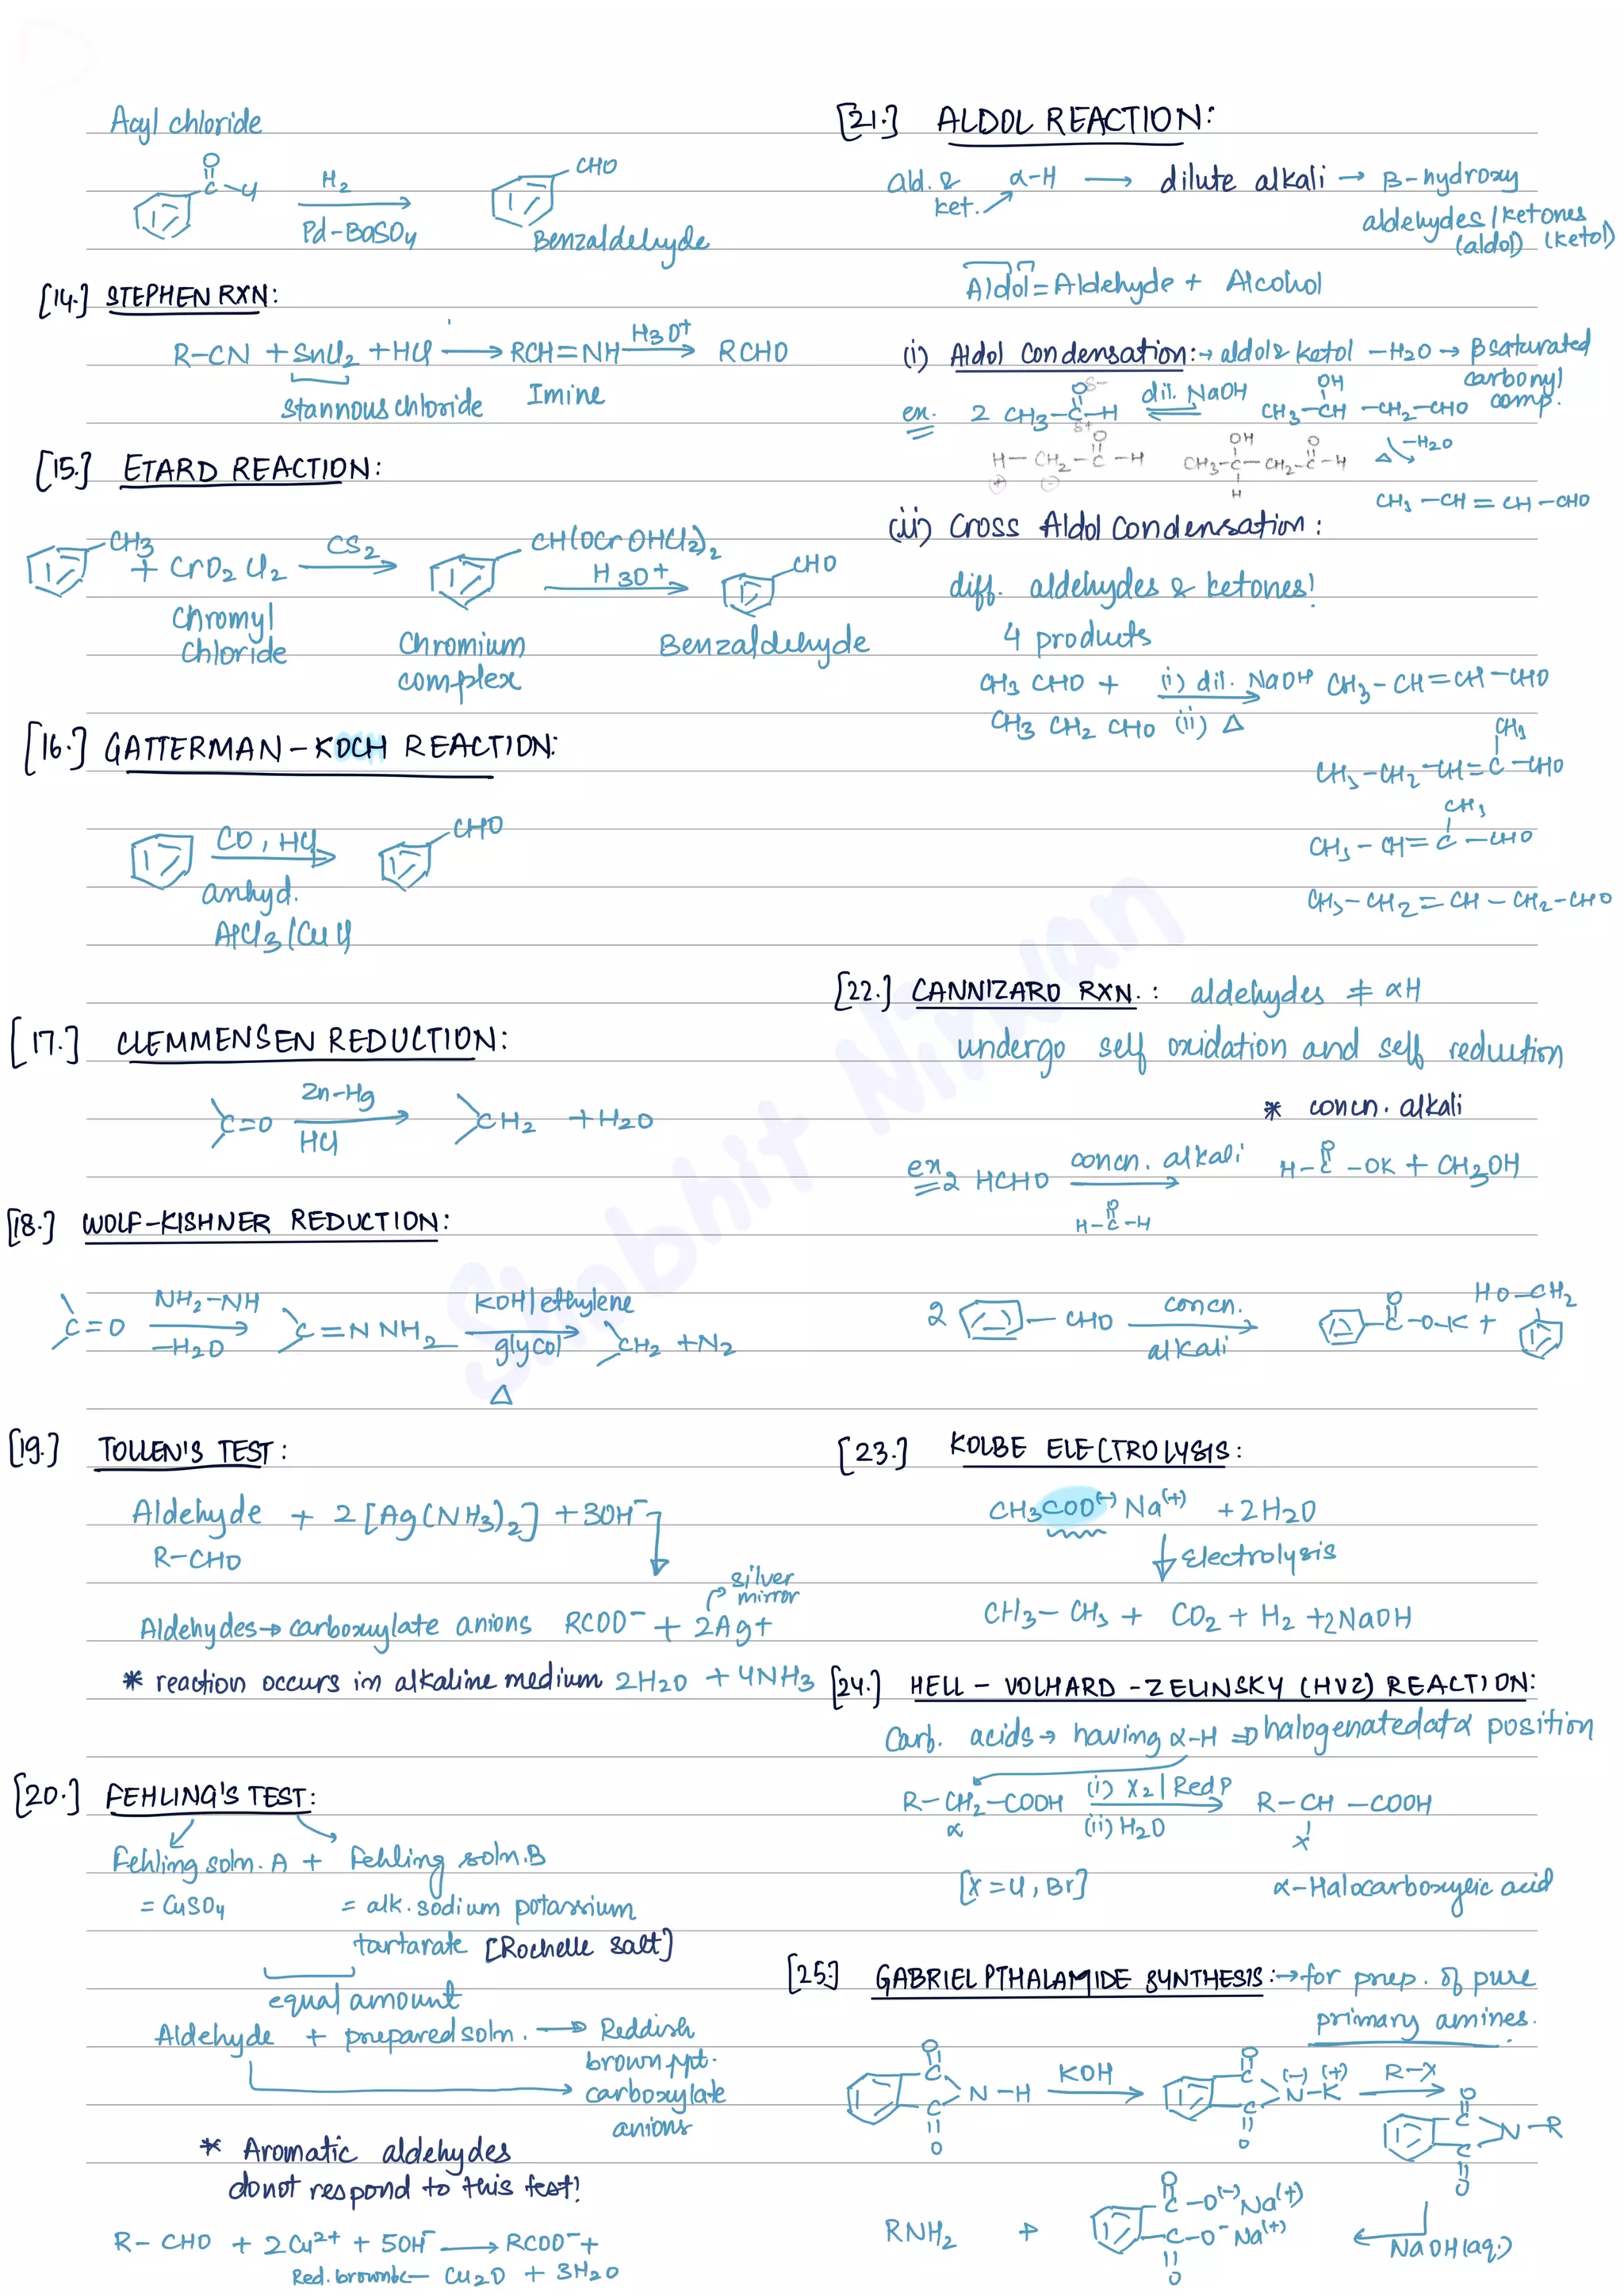 Acyl chloride
O
C-Cl H2 CHO
Pd-BaSO4 Benzaldehyde
[14.] STEPHEN RXN:
R-CN + SnCl2 + HCl → RCH=NH H3O+ → RCHO
Stannous chloride Imine
[15.] ETARD REACTION:
CH3 + CrO2Cl2 CS2 → CH(OCrOHCl2)2 H3O+ → CHO
Chromyl chloride
Chromium complex
Benzaldehyde
[16.] GATTERMAN-KOCH REACTION:
CO, HCl → CHO
anhyd.
AlCl3/CuCl
[17.] CLEMMENSEN REDUCTION:
C=O Zn-Hg → CH2 + H2O
HCl
[18.] WOLF-KISHNER REDUCTION:
C=O NH2-NH → C=NNH2 KOH/ethylene → CH2 + N2
-H2O glycol
Δ
[19.] TOLLEN'S TEST:
Aldehyde + 2[Ag(NH3)2] + 3OH-
R-CHO
silver mirror
Aldehydes → carboxylate anions RCOO- + 2Ag+
* reaction occurs in alkaline medium 2H2O + 4NH3
[20.] FEHLING'S TEST:
Fehling soln. A + Fehling soln. B
= CuSO4 = alk. sodium potassium
tartarate [Rochelle salt]
equal amount
Aldehyde + prepared soln. → Reddish
brown ppt.
carboxylate
anions
* Aromatic aldehydes
donot respond to this test!
R-CHO + 2Cu2+ + 5OH- → RCOO- +
Red. brown Cu2O + 3H2O
[21.] ALDOL REACTION:
ald. & α-H → dilute alkali → β-hydroxy
ket. aldehydes/ketones
(aldol) (ketol)
Aldol = Aldehyde + Alcohol
(i) Aldol Condensation: → aldol & ketol -H2O → β saturated
carbonyl
comp.
ex. 2 CH3-C-H dil. NaOH CH3-CH-CH2-CHO
O δ- δ+ OH
H-CH2-C-H CH3-C-CH2-C-H Δ -H2O
+ - O OH H O
CH3-CH=CH-CHO
(ii) Cross Aldol Condensation:
diff. aldehydes & ketones!
4 products
CH3CHO + (i) dil. NaOH CH3-CH=CH-CHO
CH3CH2CHO (ii) Δ
CH3
CH3-CH2-CH=C-CHO
CH3
CH3-CH=C-CHO
CH3-CH2=CH-CH2-CHO
[22.] CANNIZARO RXN.: aldehydes ≠ αH
undergo self oxidation and self reduction
* concn. alkali
ex 2 HCHO concn. alkali → H-C-OK + CH3OH
O
H-C-H
O
2 CHO concn. → C-O-K + HO-CH2
alkali O
[23.] KOLBE ELECTROLYSIS:
CH3COO(-)Na(+) + 2H2O
↓ Electrolysis
CH3-CH3 + CO2 + H2 + 2NaOH
[24.] HELL-VOLHARD-ZELINSKY (HVZ) REACTION:
Carb. acids → having α-H ⇒ halogenated at α position
R-CH2-COOH (i) X2/Red P → R-CH-COOH
α (ii) H2O X
[X = Cl, Br] α-Halocarboxylic acid
[25.] GABRIEL PTHALAMIDE SYNTHESIS: → for prep. of pure
primary amines.
O O
C C
N-H KOH → N-K (-) (+) R-X →
C C
O O
O
C
N-R
C
O
RNH2 + C-O(-)Na(+)
C-O-Na(+) ← NaOH(aq.)
O O
Shobhit Nirwan